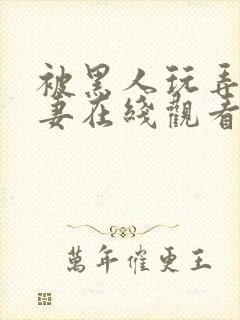 被黑人玩弄
妻在綫觀看
萬年催更王